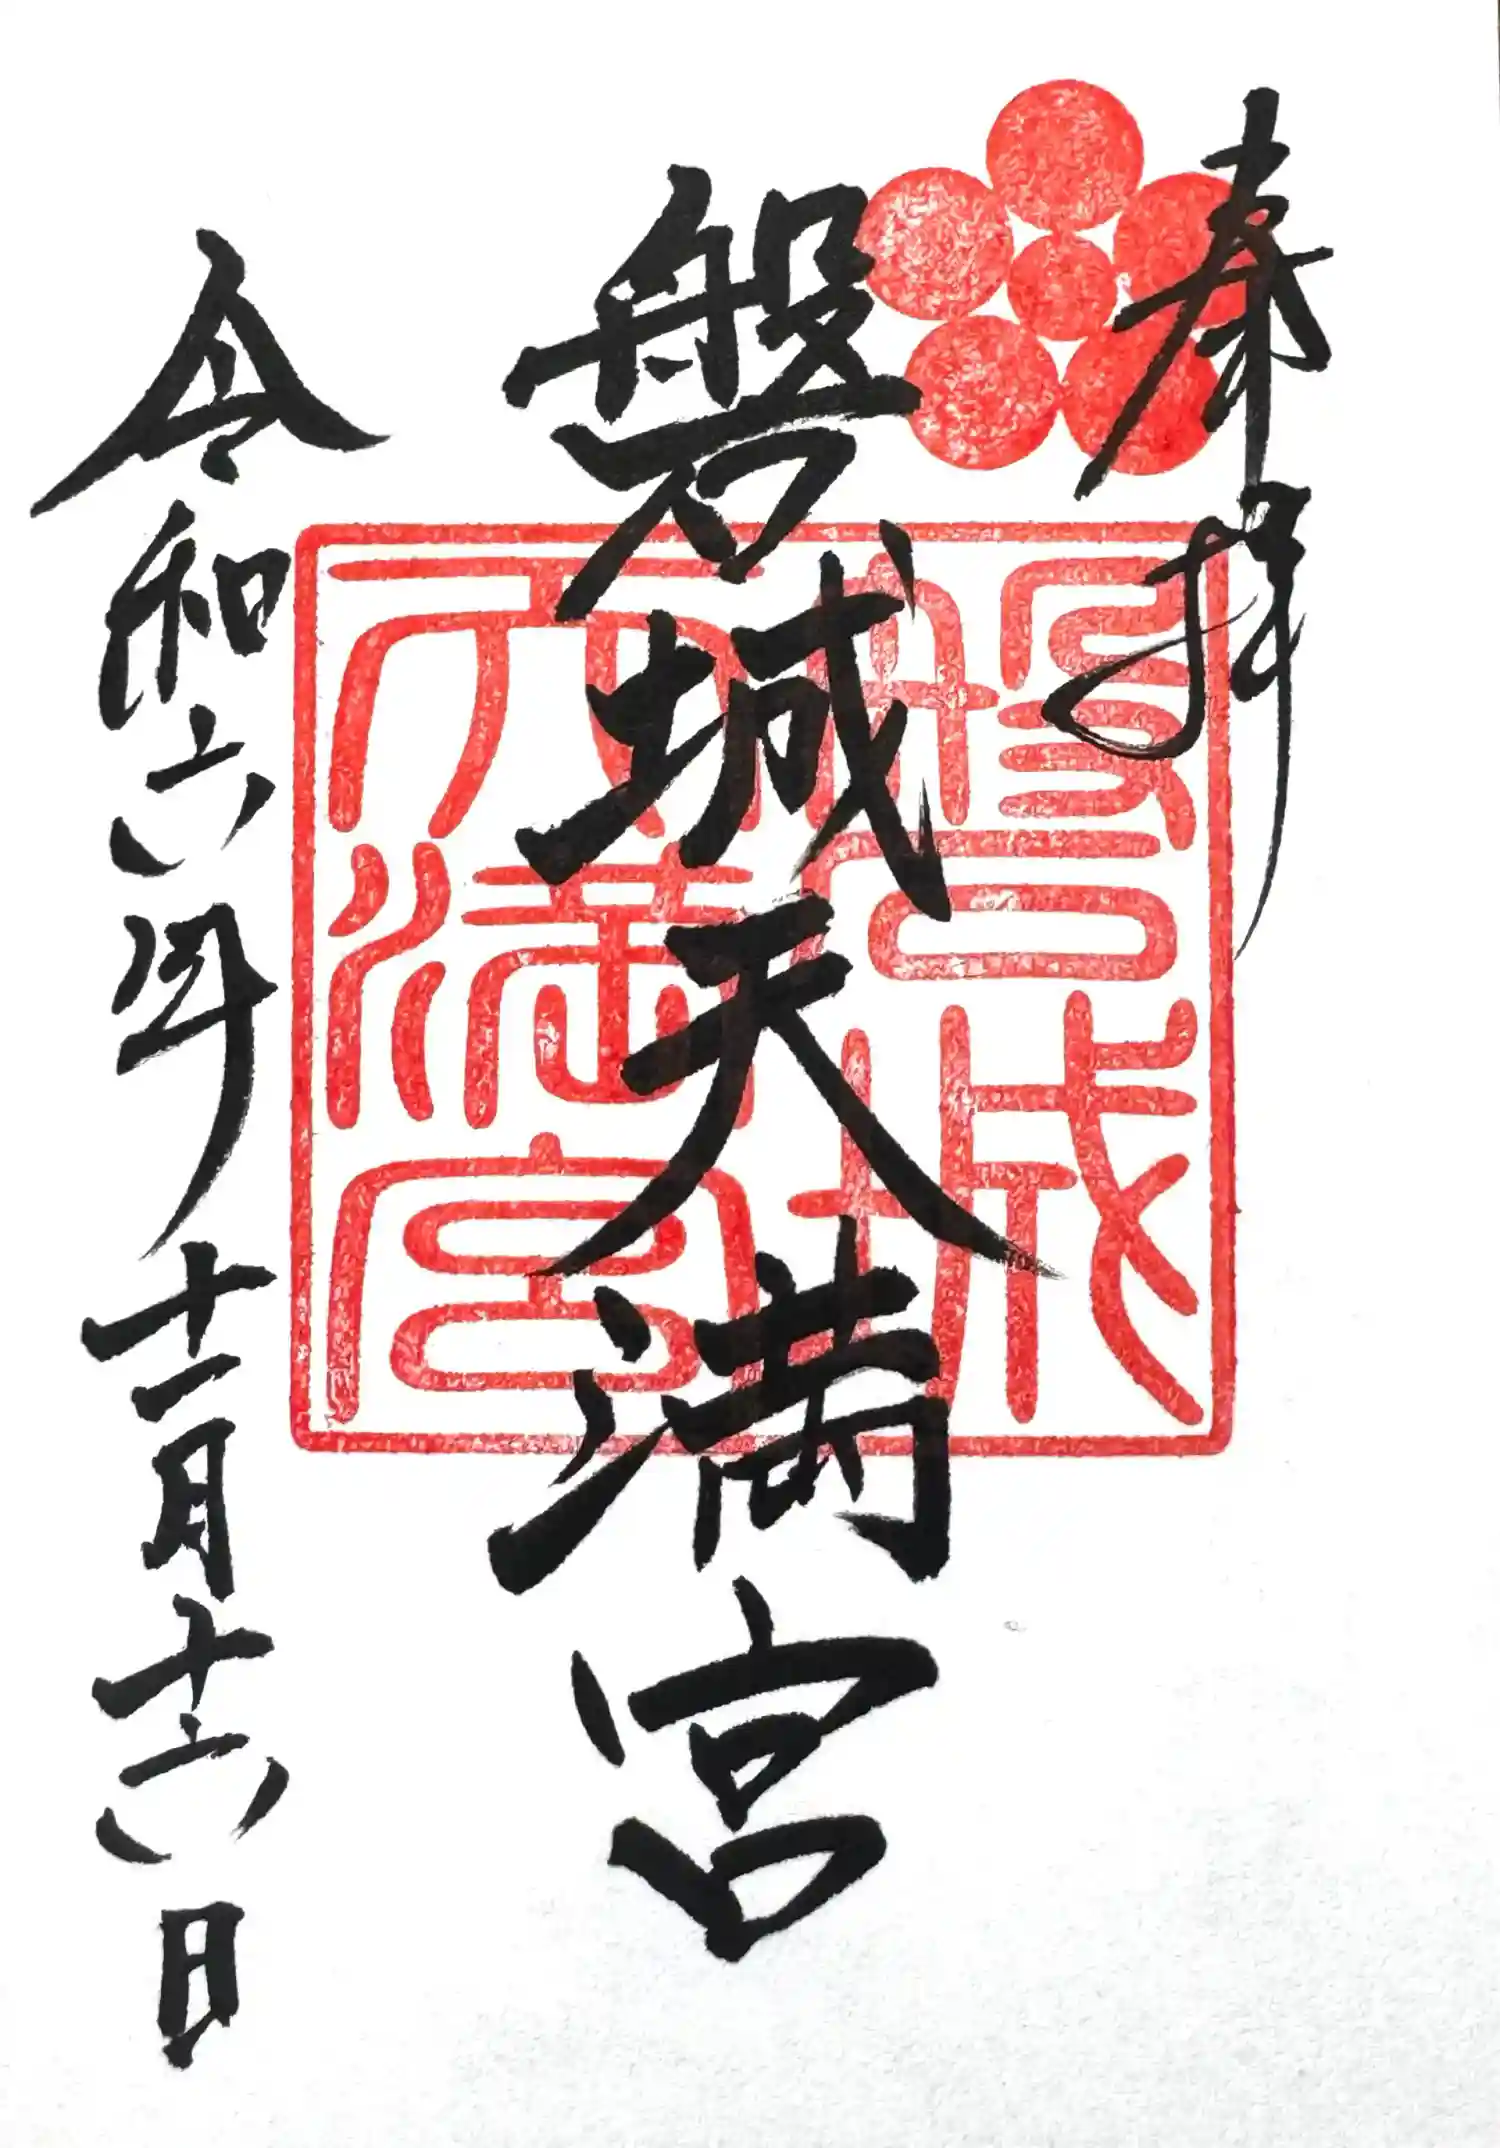 奉拝
磐城天満宮
磐城
天満宮
令和六年十一月十六日